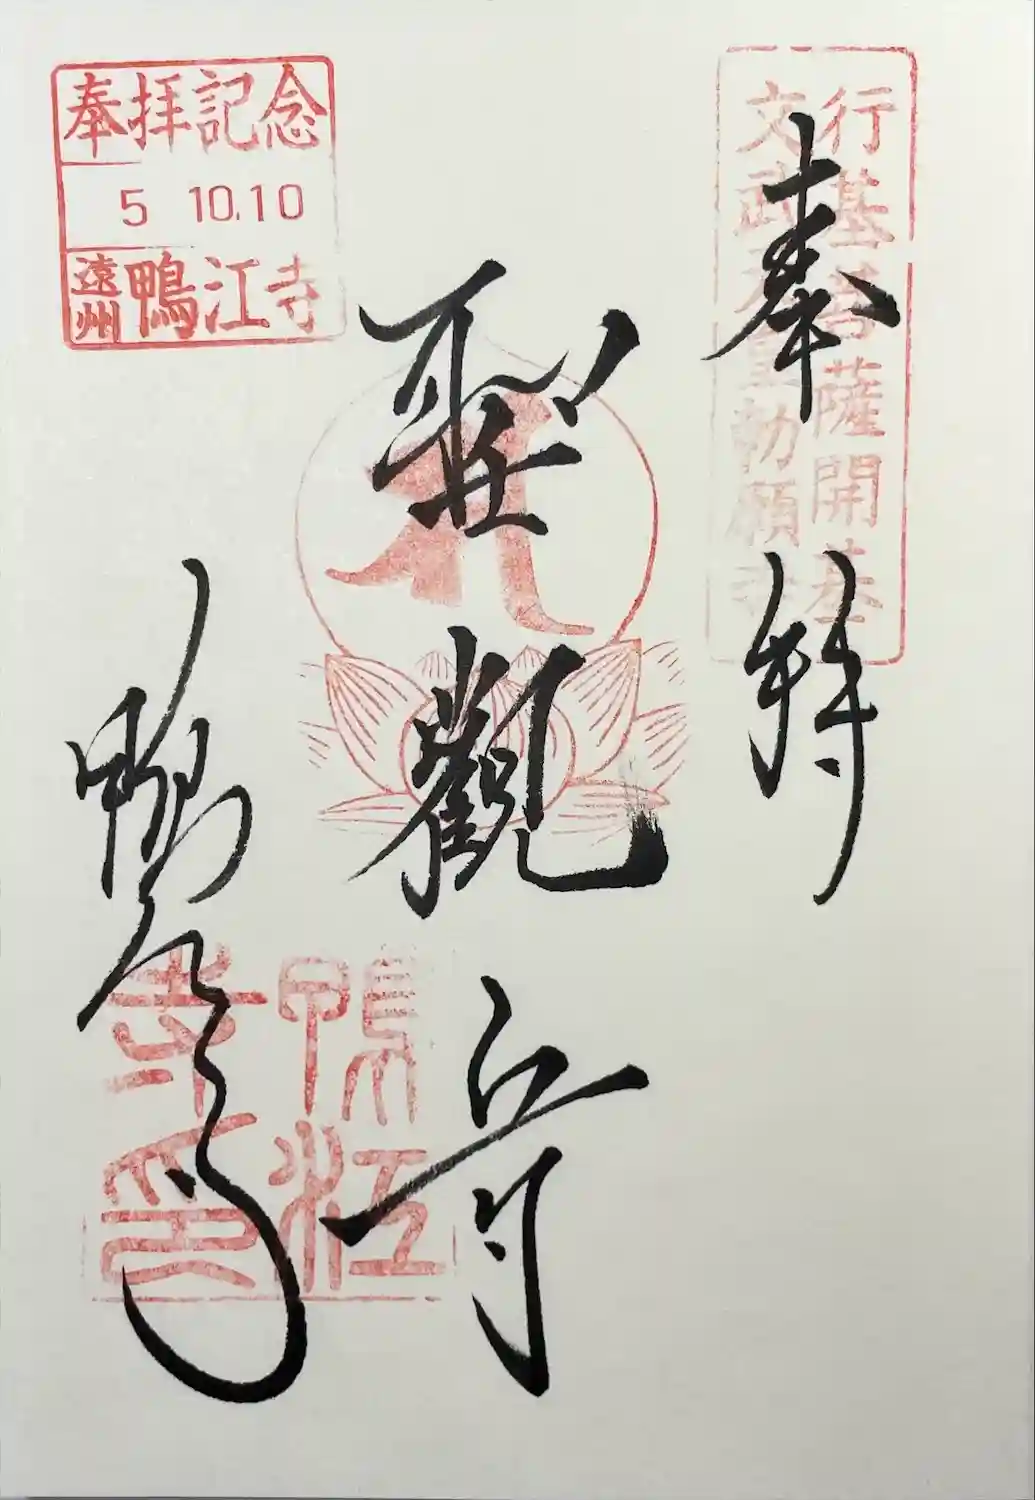 行基菩薩開基
文武天皇勅願寺
奉拝
聖観音
鴨江寺
奉拝記念
5 10.10
遠州鴨江寺
鴨江
寺印